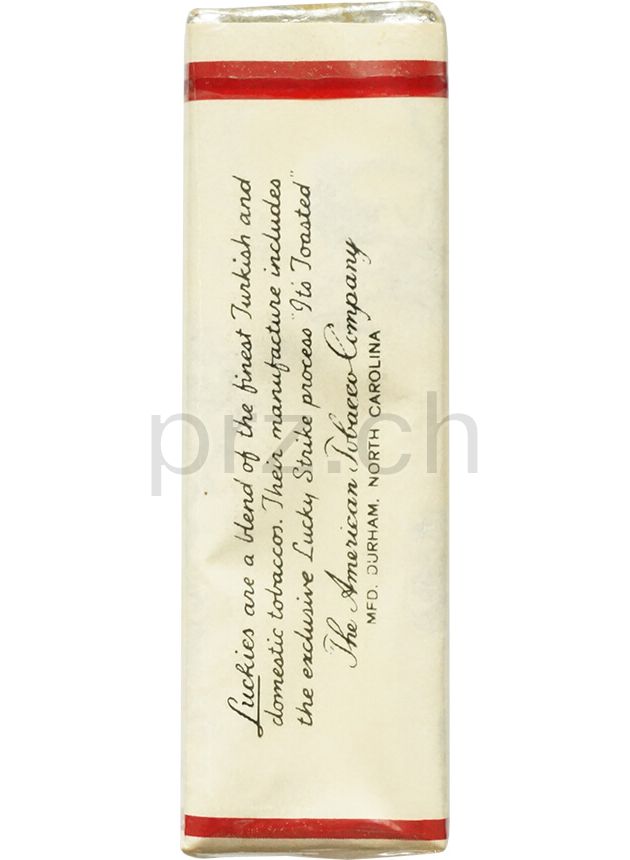 Luckies are a blend of the finest Turkish and
domestic tobaccos. Their manufacture includes
the exclusive Lucky Strike process "It's Toasted"
The American Tobacco Company
MFD. DURHAM, NORTH CAROLINA
prz.ch